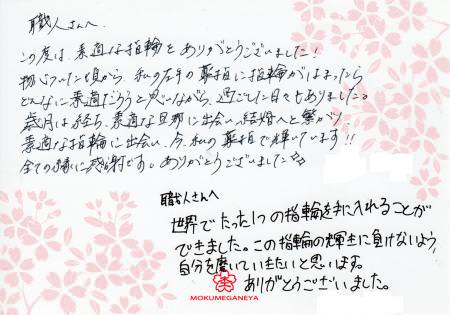 職人さんへ
この度は、素適な指輪をありがとうございました!
物心ついた頃から、私の左手の薬指に指輪がはまったら
どんなに素適だろうと思いながら、過ごした日々もありました。
歳月は経ち、素適な旦那に出会い、結婚へと繋がり、
素適な指輪に出会い、今、私の薬指で輝いています!!
全ての縁に感謝です。ありがとうございました
職人さんへ
世界でたった1つの指輪を手に入れることが
できました。この指輪の輝きに負けないよう
自分を磨いていきたいと思います。
ありがとうございました。
MOKUMEGANEYA